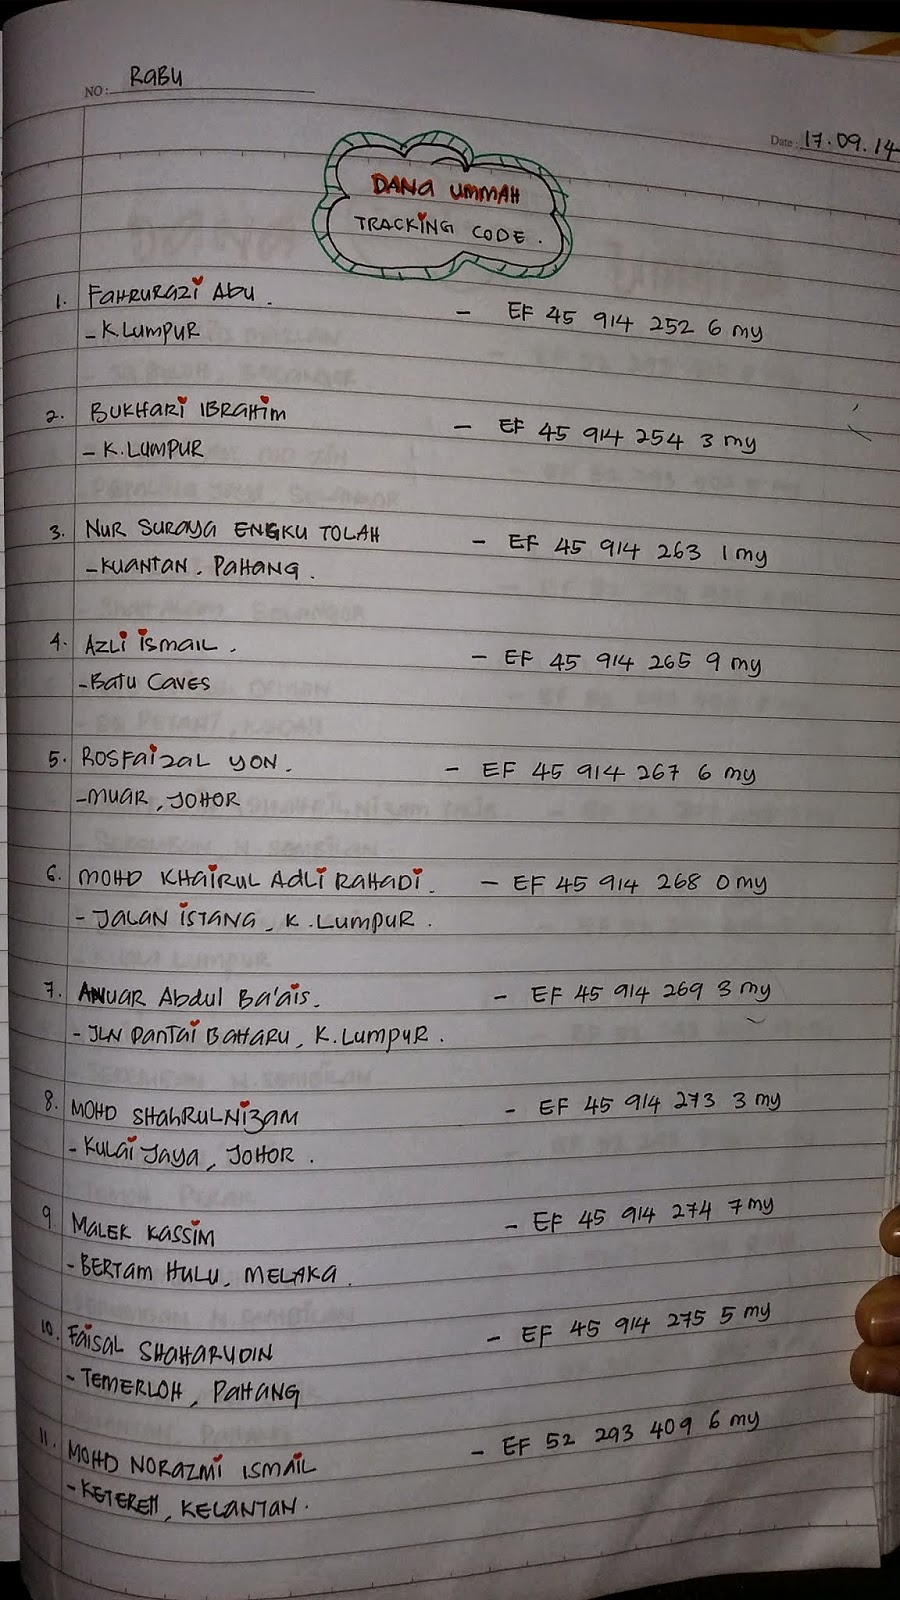 NO: RABU
Date: 17.09.14
DANA UMMAH
TRACKING CODE.
1. FAHRURAZI ABU. - EF 45 914 252 6 my
- K.LUMPUR
2. BUKHARI IBRAHIM - EF 45 914 254 3 my
- K.LUMPUR
3. NUR SURAYA ENGKU TOLAH - EF 45 914 263 1 my
- KUANTAN, PAHANG.
4. AZLI ISMAIL. - EF 45 914 265 9 my
- BATU CAVES
5. ROSFAIZAL YON. - EF 45 914 267 6 my
- MUAR, JOHOR
6. MOHD KHAIRUL ADLI RAHADI. - EF 45 914 268 0 my
- JALAN ISTANG, K.LUMPUR.
7. ANUAR ABDUL BA'AIS. - EF 45 914 269 3 my
- JLN PANTAI BAHARU, K.LUMPUR.
8. MOHD SHAHRULNIZAM - EF 45 914 273 3 my
- KULAI JAYA, JOHOR.
9. MALEK KASSIM - EF 45 914 274 7 my
- BERTAM HULU, MELAKA.
10. FAISAL SHAHARUDIN - EF 45 914 275 5 my
- TEMERLOH, PAHANG
11. MOHD NORAZMI ISMAIL - EF 52 293 409 6 my
- KETEREH, KELANTAN.